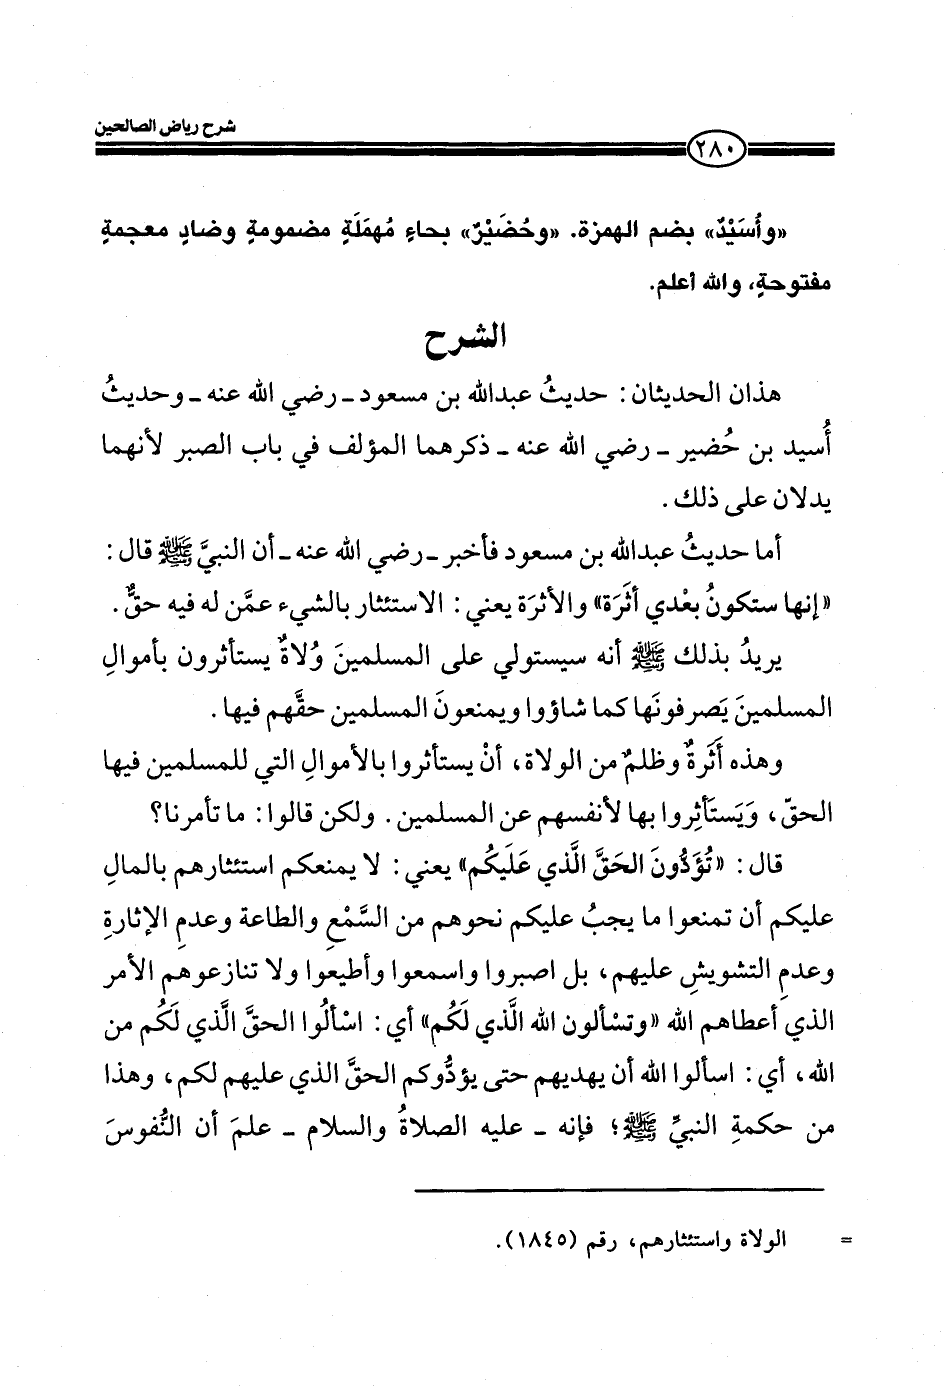 شرح رياض الصالحين
٢٨٠
«وأُسَيْدٌ» بضم الهمزة. «وحُضَيْرٌ» بحاءٍ مُهمَلَةٍ مضمومةٍ وضادٍ معجمةٍ
مفتوحةٍ، والله أعلم.
الشرح
هذان الحديثان: حديثُ عبدالله بن مسعود ـ رضي الله عنه ـ وحديثُ
أُسيد بن حُضير ـ رضي الله عنه ـ ذكرهما المؤلف في باب الصبر لأنهما
يدلان على ذلك.
أما حديثُ عبدالله بن مسعود فأخبر ـ رضي الله عنه ـ أن النبيَّ ﷺ قال:
«إنها ستكونُ بعْدي أثَرَة» والأثرَة يعني: الاستئثار بالشيء عمَّن له فيه حقٌّ.
يريدُ بذلك ﷺ أنه سيستولي على المسلمينَ وُلاةٌ يستأثرون بأموالِ
المسلمينَ يَصرفونَها كما شاؤوا ويمنعونَ المسلمين حقَّهم فيها.
وهذه أثَرةٌ وظلمٌ من الولاة، أنْ يستأثروا بالأموالِ التي للمسلمين فيها
الحقّ، وَيَستَأثِروا بها لأنفسهم عن المسلمين. ولكن قالوا: ما تأمرنا؟
قال: «تُؤَدُّونَ الحَقَّ الَّذي عَلَيكُم» يعني: لا يمنعكم استئثارهم بالمالِ
عليكم أن تمنعوا ما يجبُ عليكم نحوهم من السَّمْعِ والطاعة وعدمِ الإثارةِ
وعدمِ التشويشِ عليهم، بل اصبروا واسمعوا وأطيعوا ولا تنازعوهم الأمر
الذي أعطاهم الله «وتسْألون الله الَّذي لَكُم» أي: اسْألُوا الحقَّ الَّذي لَكُم من
الله، أي: اسألوا الله أن يهديهم حتى يؤدُّوكم الحقَّ الذي عليهم لكم، وهذا
من حكمةِ النبيِّ ﷺ؛ فإنه ـ عليه الصلاةُ والسلام ـ علمَ أن النُّفوسَ
= الولاة واستئثارهم، رقم (١٨٤٥).